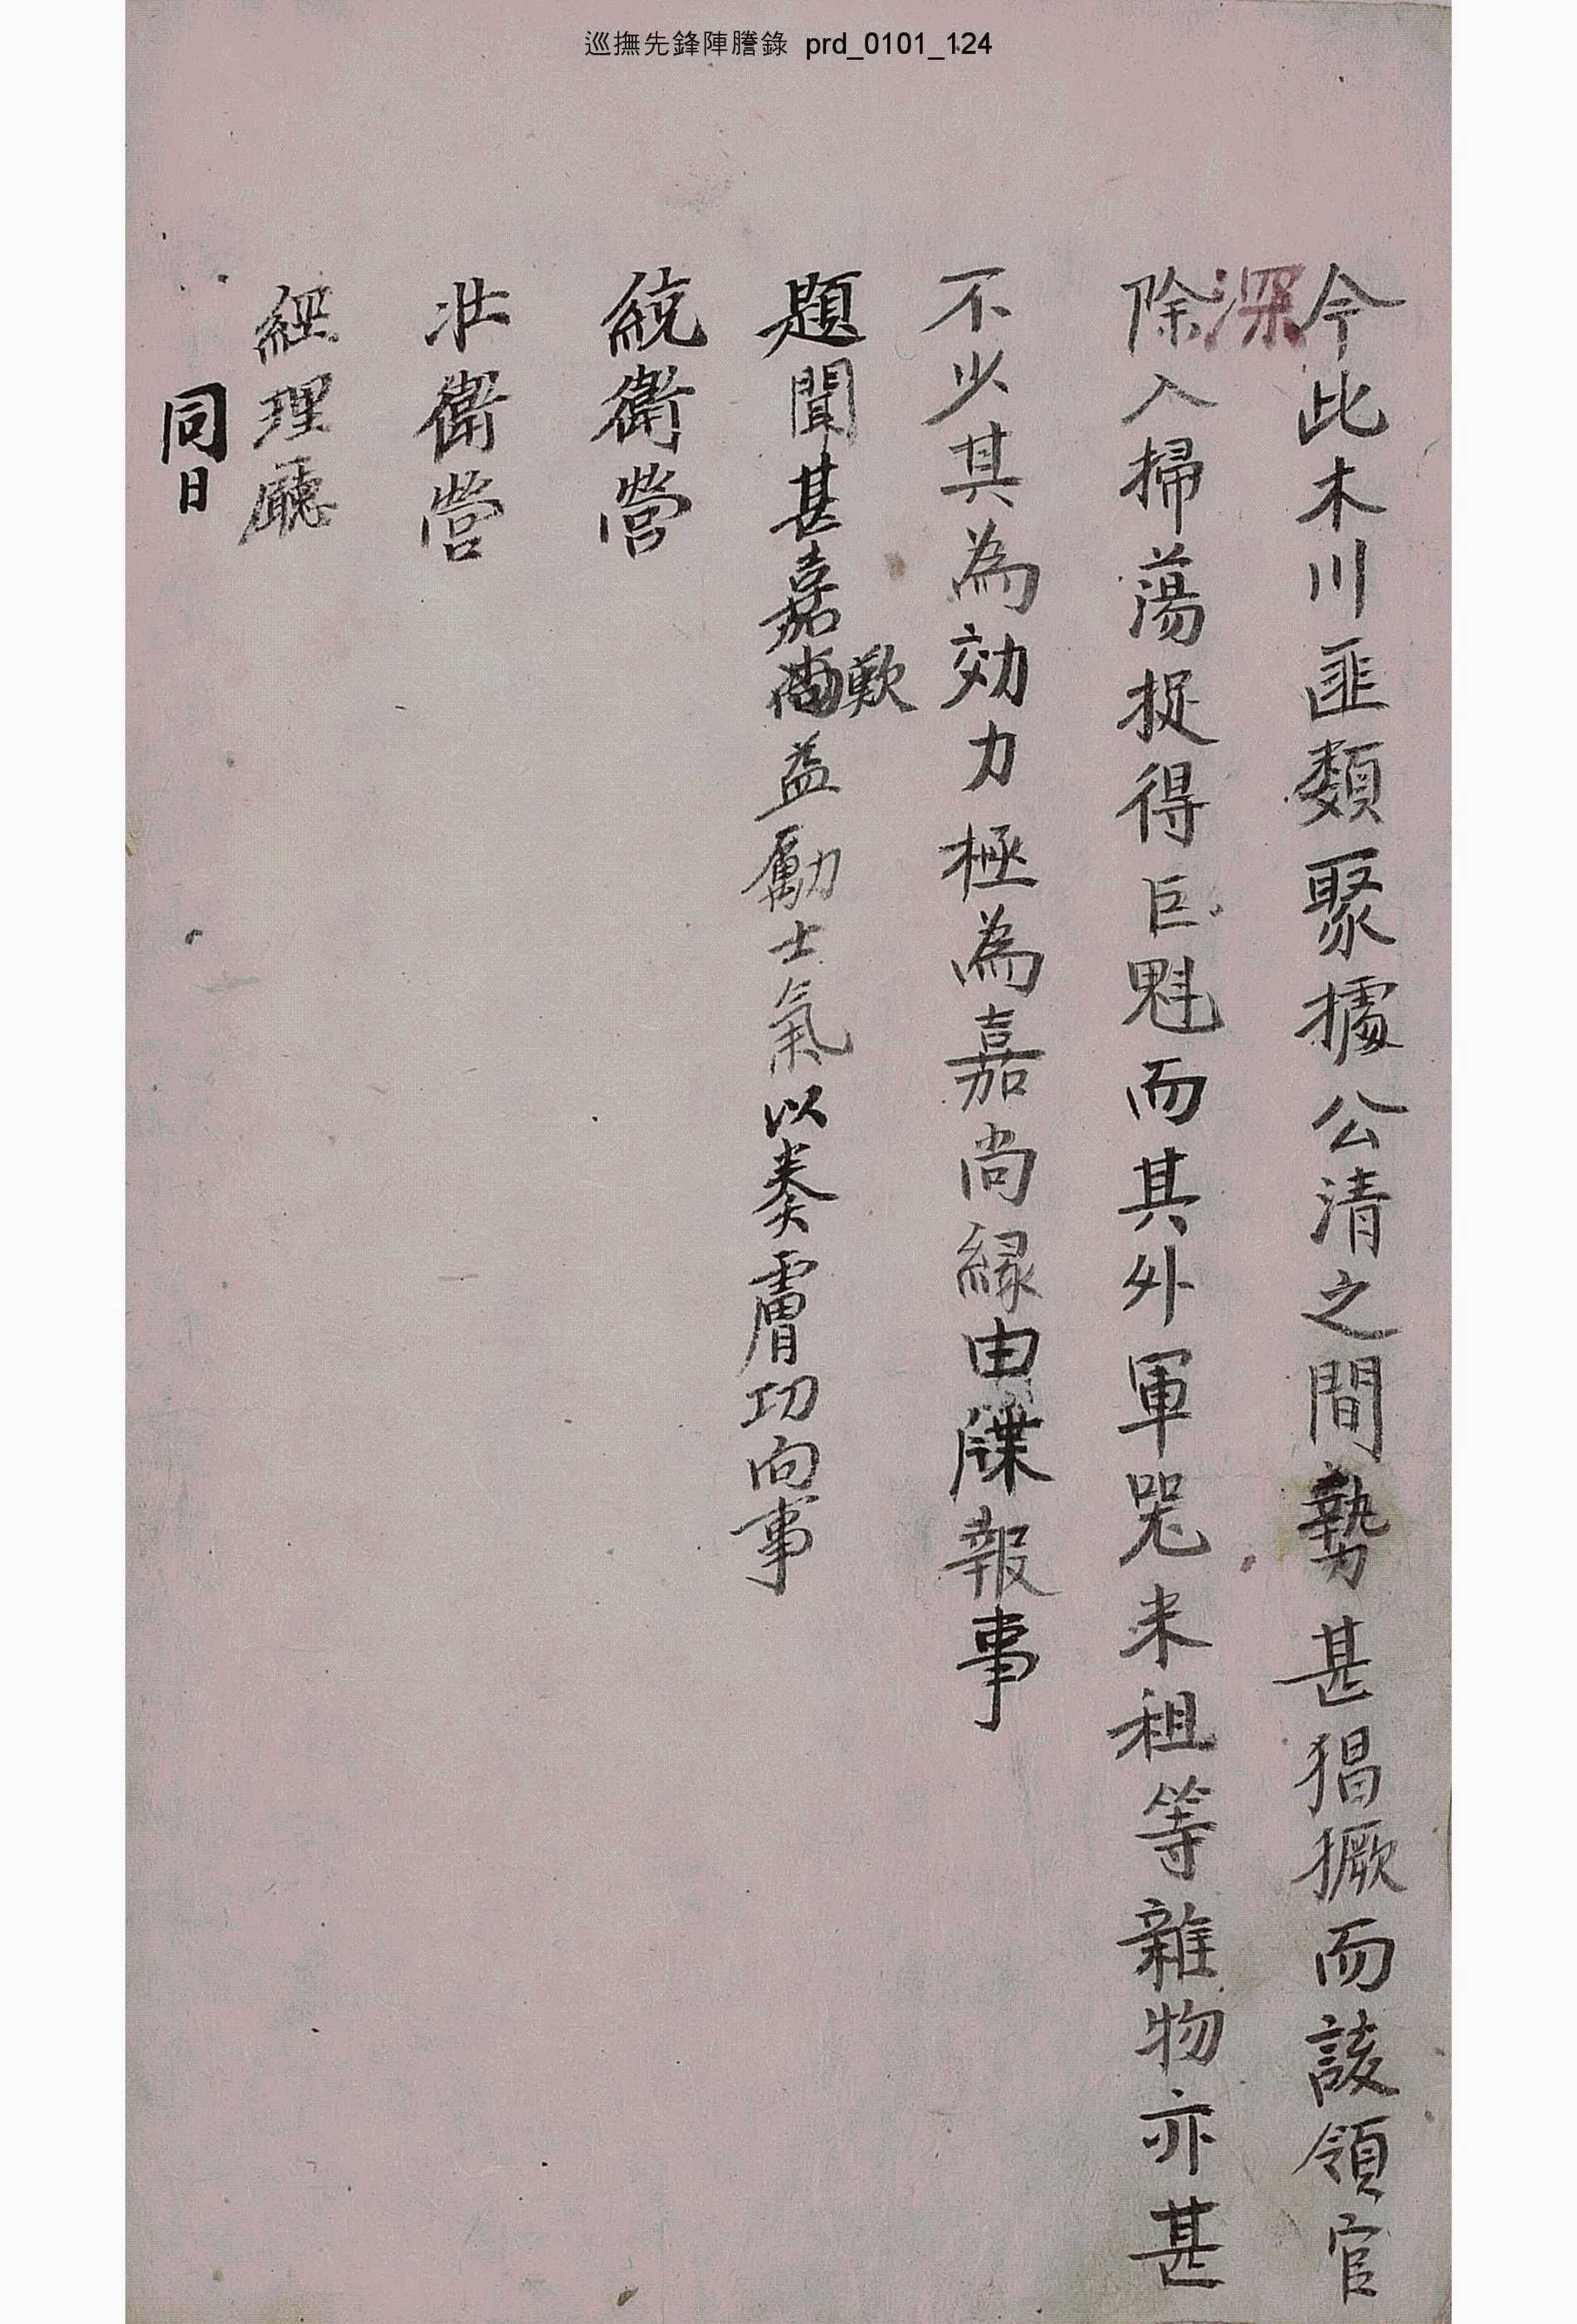 巡撫先鋒陣謄錄 prd_0101_124
今此木川匪類聚據公淸之間勢甚猖獗而該領官
深
除入掃蕩捉得巨魁而其外軍器米租等雜物亦甚
不少其為効力極為嘉尚緣由牒報事
題聞甚嘉歎益勵士氣以奏膚功向事
統衛營
壯衛營
經理廳
同日